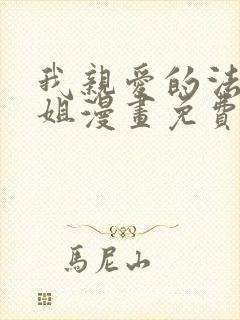 我親愛的法
姐漫畫免費
馬尼山